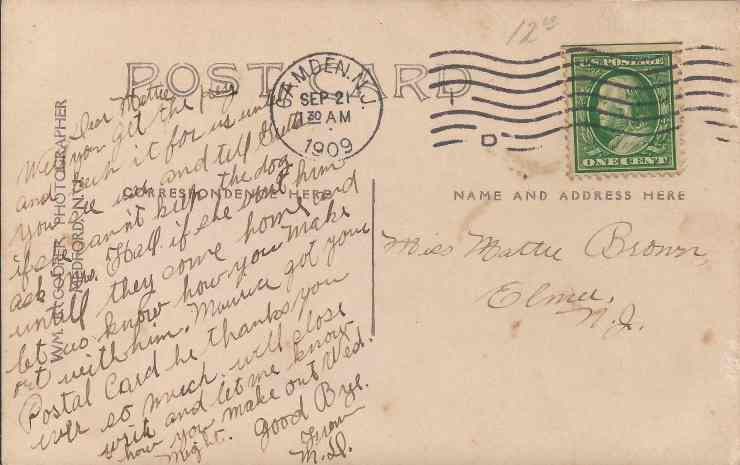 12 00
POST CARD
CAMDEN. N.J.
SEP 21
30 AM
1909
D
U.S. POSTAGE
ONE CENT
CORRESPONDENCE HERE
NAME AND ADDRESS HERE
WM. H. COOPER PHOTOGRAPHER
MEDFORD, N.J.
Dear Mattie
Well you get the
and it for us until
you see us and tell
if she can't keep the dog
ask Mrs. Hall if she want him
until they come home and
let us know how you make
out with him. Maurice got your
Postal Card he thanks you
ever so much. will close
write and let me know
how you make out Wed.
Night. Good Bye.
From
M.D.
Miss Mattie Brown,
Elmer.
N.J.